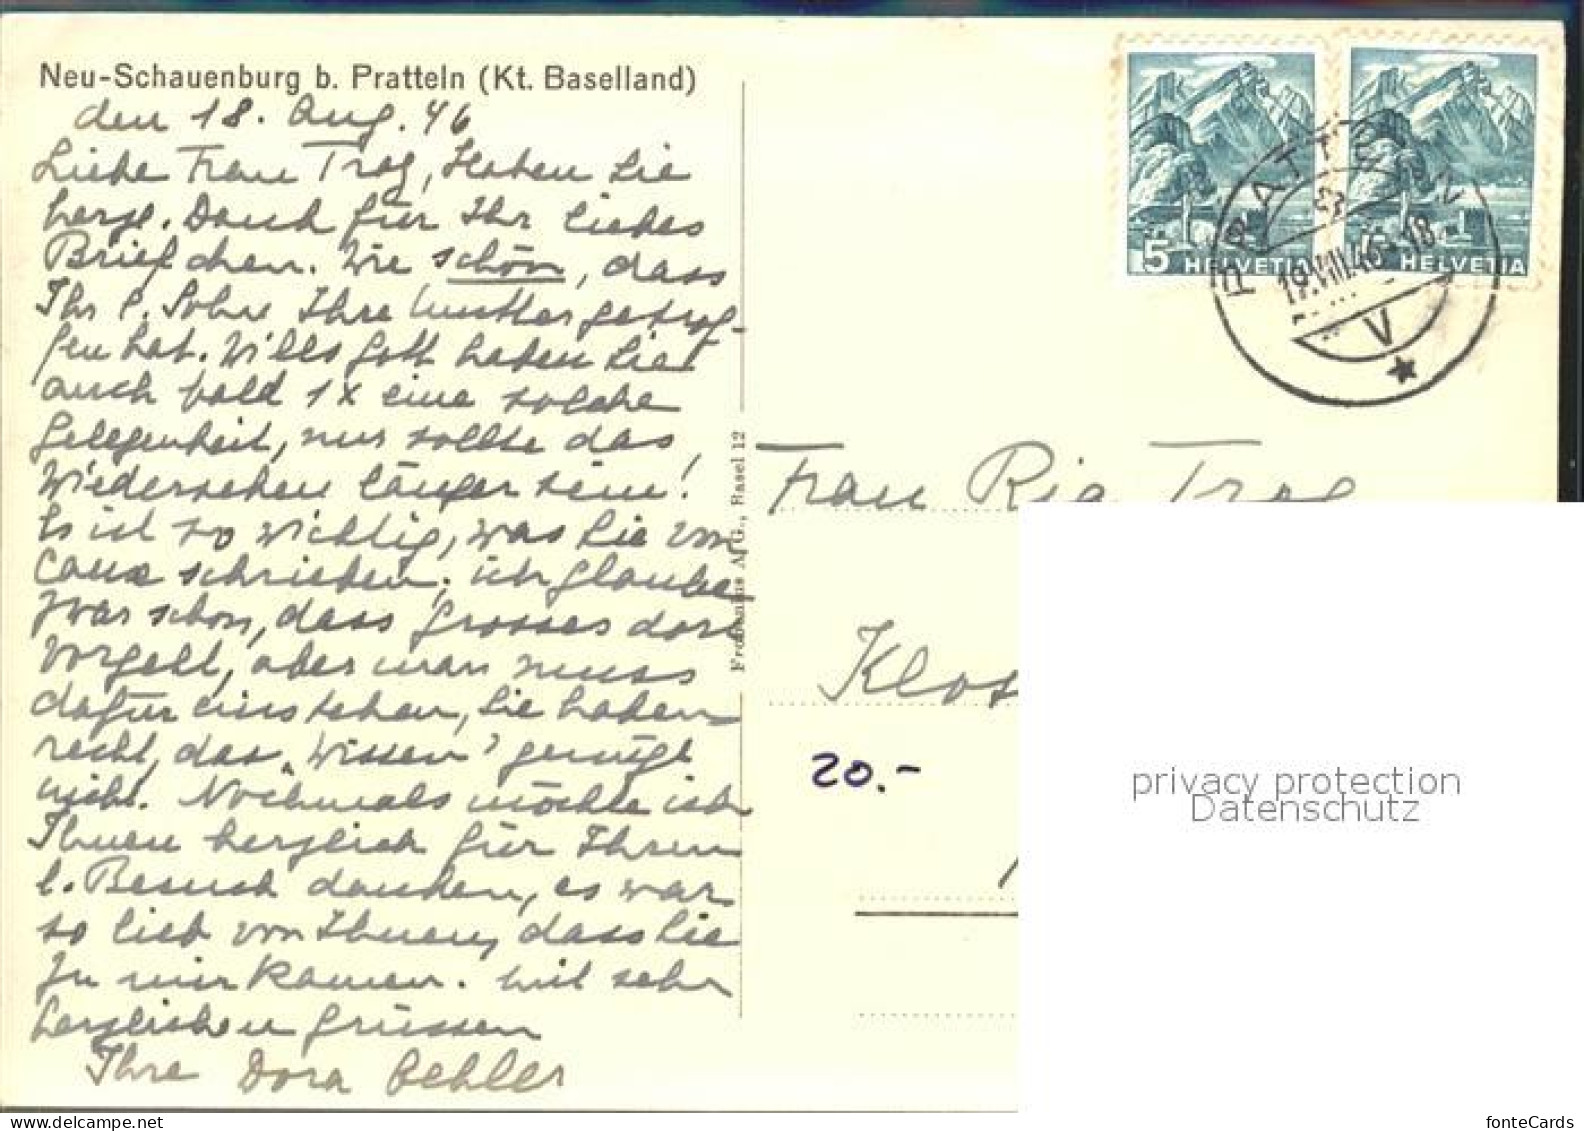 Neu-Schauenburg b. Pratteln (Kt. Baselland)
den 18. Aug. 46
Liebe Frau Trog, Haben Sie
herzl. Dank für Ihr liebes
Briefchen. Wie schön, dass
Ihr l. Sohn Ihre Mutter getrof-
fen hat. Wills Gott haben Sie
auch bald 1x eine solche
Gelegenheit, nur sollte das
Wiedersehen länger sein!
Es ist so wichtig, was Sie von
Caux schrieben, ich glaube
zwar schon, dass Grosses dort
vorgeht, aber man muss
dafür einstehen, Sie haben
recht, das „Wissen" genügt
nicht. Nochmals möchte ich
Ihnen herzlich für Ihren
l. Besuch danken, es war
so lieb von Ihnen, dass Sie
zu mir kamen. Mit sehr
herzlichen Grüssen
Ihre Dora Oehler
Frobenius A. G., Basel 12
5 HELVETIA
HELVETIA
PRATTELN
19.VIII.46-18
V
Frau Ria Trog
Klos
20.-
privacy protection
Datenschutz
www.delcampe.net
fonteCards